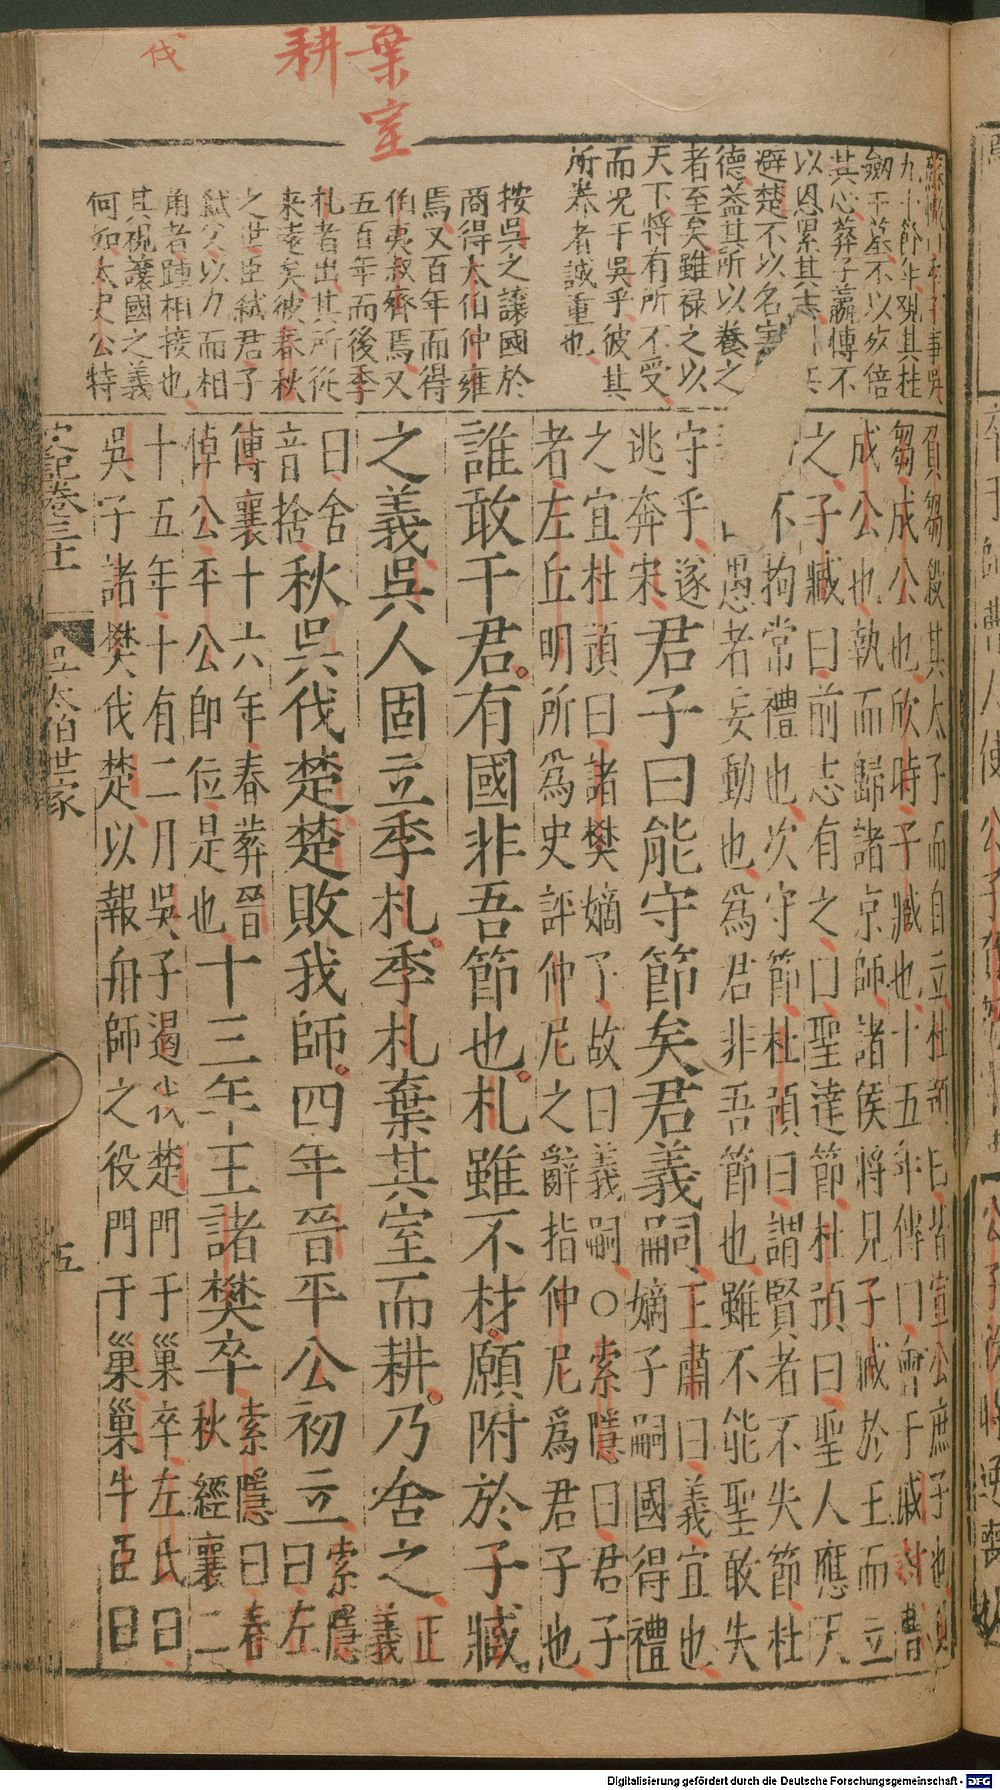 棄室
耕
伐
九十餘年矣其挂
劍于墓不以死倍
其心葬子嬴博不
以恩累其志
避楚不以名害
德蓋其所以養之
者至矣雖祿之以
天下將有所不受
而况于吳乎彼其
所養者誠重也
按吳之讓國於
商得太伯仲雍
焉又百年而得
伯夷叔齊焉又
五百年而後季
札者出其所從
來遠矣彼春秋
之世臣弒君子
弒父以力而相
角者踵相接也
其視讓國之義
何如太史公特
負芻殺其太子而自立杜預曰皆宣公庶子也負
芻成公也欣時子臧也十五年傳曰會于戚討曹
成公也執而歸諸京師諸侯將見子臧於王而立
之子臧曰前志有之曰聖達節杜預曰聖人應天
不拘常禮也次守節杜預曰謂賢者不失節杜
愚者妄動也為君非吾節也雖不能聖敢失
守乎遂
逃奔宋
君子曰能守節矣君義嗣
王肅曰義宜也
嫡子嗣國得禮
之宜杜預曰諸樊嫡子故曰義嗣○索隱曰君子
者左丘明所為史評仲尼之辭指仲尼為君子也
誰敢干君有國非吾節也札雖不材願附於子臧
之義吳人固立季札季札棄其室而耕乃舍之
正
義
曰舍
音捨
秋吳伐楚楚敗我師四年晉平公初立
索隱
曰左
傳襄十六年春葬晉
悼公平公即位是也
十三年王諸樊卒
索隱曰春
秋經襄二
十五年十有二月吳子遏伐楚門于巢卒左氏曰
吳子諸樊伐楚以報舟師之役門于巢巢牛臣曰
史記卷三十一
吳太伯世家
五
Digitalisierung gefördert durch die Deutsche Forschungsgemeinschaft - DFG